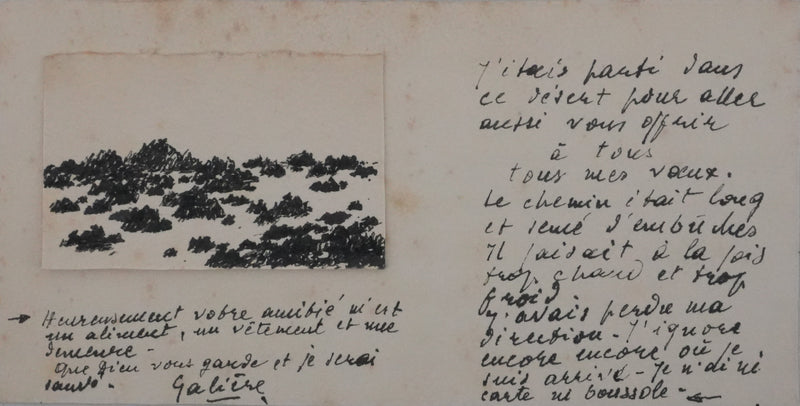 J'étais parti dans
ce désert pour aller
aussi vous offrir
à tous
tous mes vœux.
Le chemin était long
et semé d'embûches
Il faisait à la fois
trop chaud et trop
froid
J'avais perdu ma
direction - J'ignore
encore encore où je
suis arrivé - Je n'ai ni
carte ni boussole - ←
→ Heureusement votre amitié m'est
un aliment, un vêtement et une
demeure -
Que Dieu vous garde et je serai
sauvé -
Galière